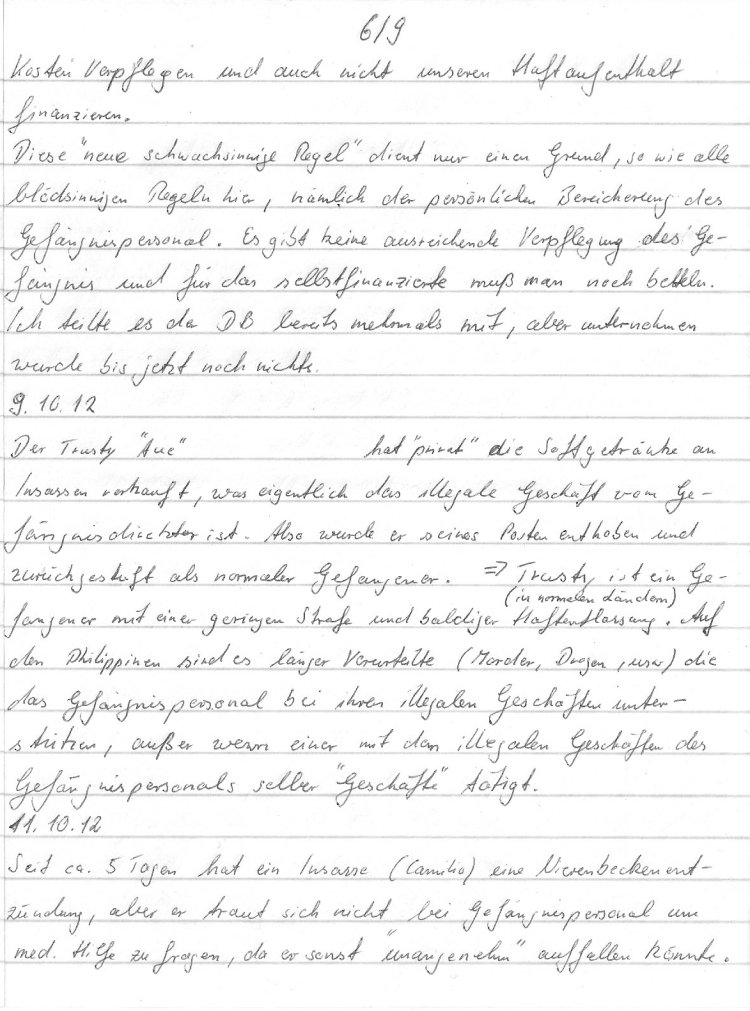 6/9
Kosten Verpflegen und auch nicht unseren Haftaufenthalt
finanzieren.
Diese "neue schwachsinnige Regel" dient nur einen Grund, so wie alle
blödsinnigen Regeln hier, nämlich der persönlichen Bereicherung des
Gefängnispersonal. Es gibt keine ausreichende Verpflegung des Ge-
fängnis und für das selbstfinanzierte muß man noch betteln.
Ich teilte es der DB bereits mehrmals mit, aber unternehmen
wurde bis jetzt noch nichts.
9.10.12
Der Trusty "Aue" hat "privat" die Softgetränke an
Insassen verkauft, was eigentlich das illegale Geschäft vom Ge-
fängnisdirektor ist. Also wurde er seines Posten enthoben und
zurückgestuft als normaler Gefangener. => Trusty ist ein Ge-
(in normalen Ländern)
fangener mit einer geringen Strafe und baldiger Haftentlassung. Auf
den Philippinen sind es länger Verurteilte (Mörder, Drogen, usw) die
das Gefängnispersonal bei ihren illegalen Geschäften unter-
stützen, außer wenn einer mit den illegalen Geschäften des
Gefängnispersonals selber "Geschäfte" tätigt.
11.10.12
Seit ca. 5 Tagen hat ein Insasse (Camilio) eine Nierenbeckenent-
zündung, aber er traut sich nicht bei Gefängnispersonal um
med. Hilfe zu fragen, da er sonst "unangenehm" auffallen könnte.